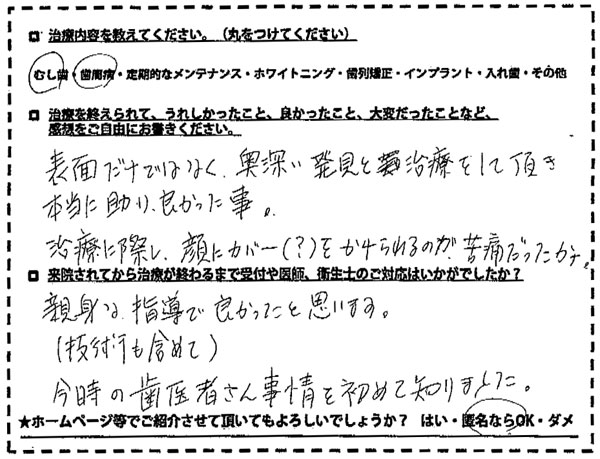 治療内容を教えてください。（丸をつけてください）
むし歯・歯周病・定期的なメンテナンス・ホワイトニング・歯列矯正・インプラント・入れ歯・その他
治療を終えられて、うれしかったこと、良かったこと、大変だったことなど、
感想をご自由にお書きください。
表面だけではなく、奥深い発見と治療をして頂き
本当に助り、良かった事。
治療に際し、顔にカバー(？)をかけられるのが、苦痛だったカナ。
来院されてから治療が終わるまで受付や医師、衛生士のご対応はいかがでしたか？
親身な指導で良かったと思います。
(技術も含めて)
今時の歯医者さん事情を初めて知りました。
★ホームページ等でご紹介させて頂いてもよろしいでしょうか？ はい・匿名ならOK・ダメ